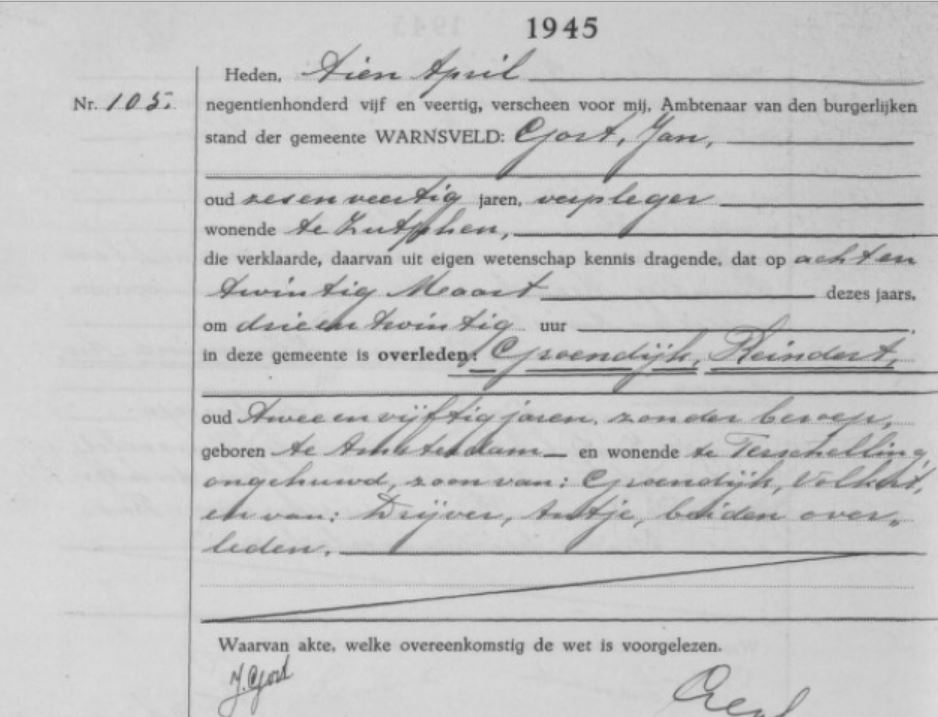 1945
Heden, tien April
Nr. 105. negentienhonderd vijf en veertig, verscheen voor mij, Ambtenaar van den burgerlijken
stand der gemeente WARNSVELD: Gort, Jan,
oud zesenveertig jaren, verpleger
wonende te Zutphen,
die verklaarde, daarvan uit eigen wetenschap kennis dragende, dat op achten
twintig Maart dezes jaars,
om drieentwintig uur
in deze gemeente is overleden: Groendijk, Reindert,
oud tweeenvijftig jaren, zonder beroep,
geboren te Amsterdam en wonende te Terschelling
ongehuwd, zoon van: Groendijk, Volkert,
en van: Drijver, Antje, beiden over„
leden.
Waarvan akte, welke overeenkomstig de wet is voorgelezen.
J. Gort